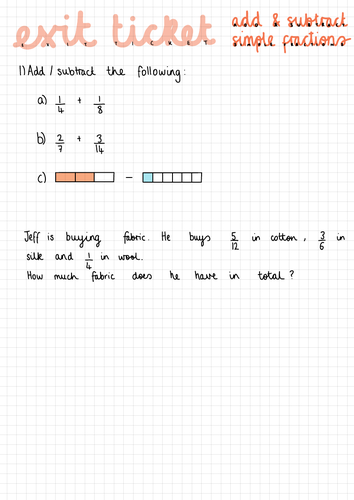 exit ticket
EXIT TICKET
add & subtract
simple fractions
1) Add / subtract the following:
a) 1/4 + 1/8
b) 2/7 + 3/14
c) -
Jeff is buying fabric. He buys 5/12 in cotton, 3/6 in
silk and 1/4 in wool.
How much fabric does he have in total?